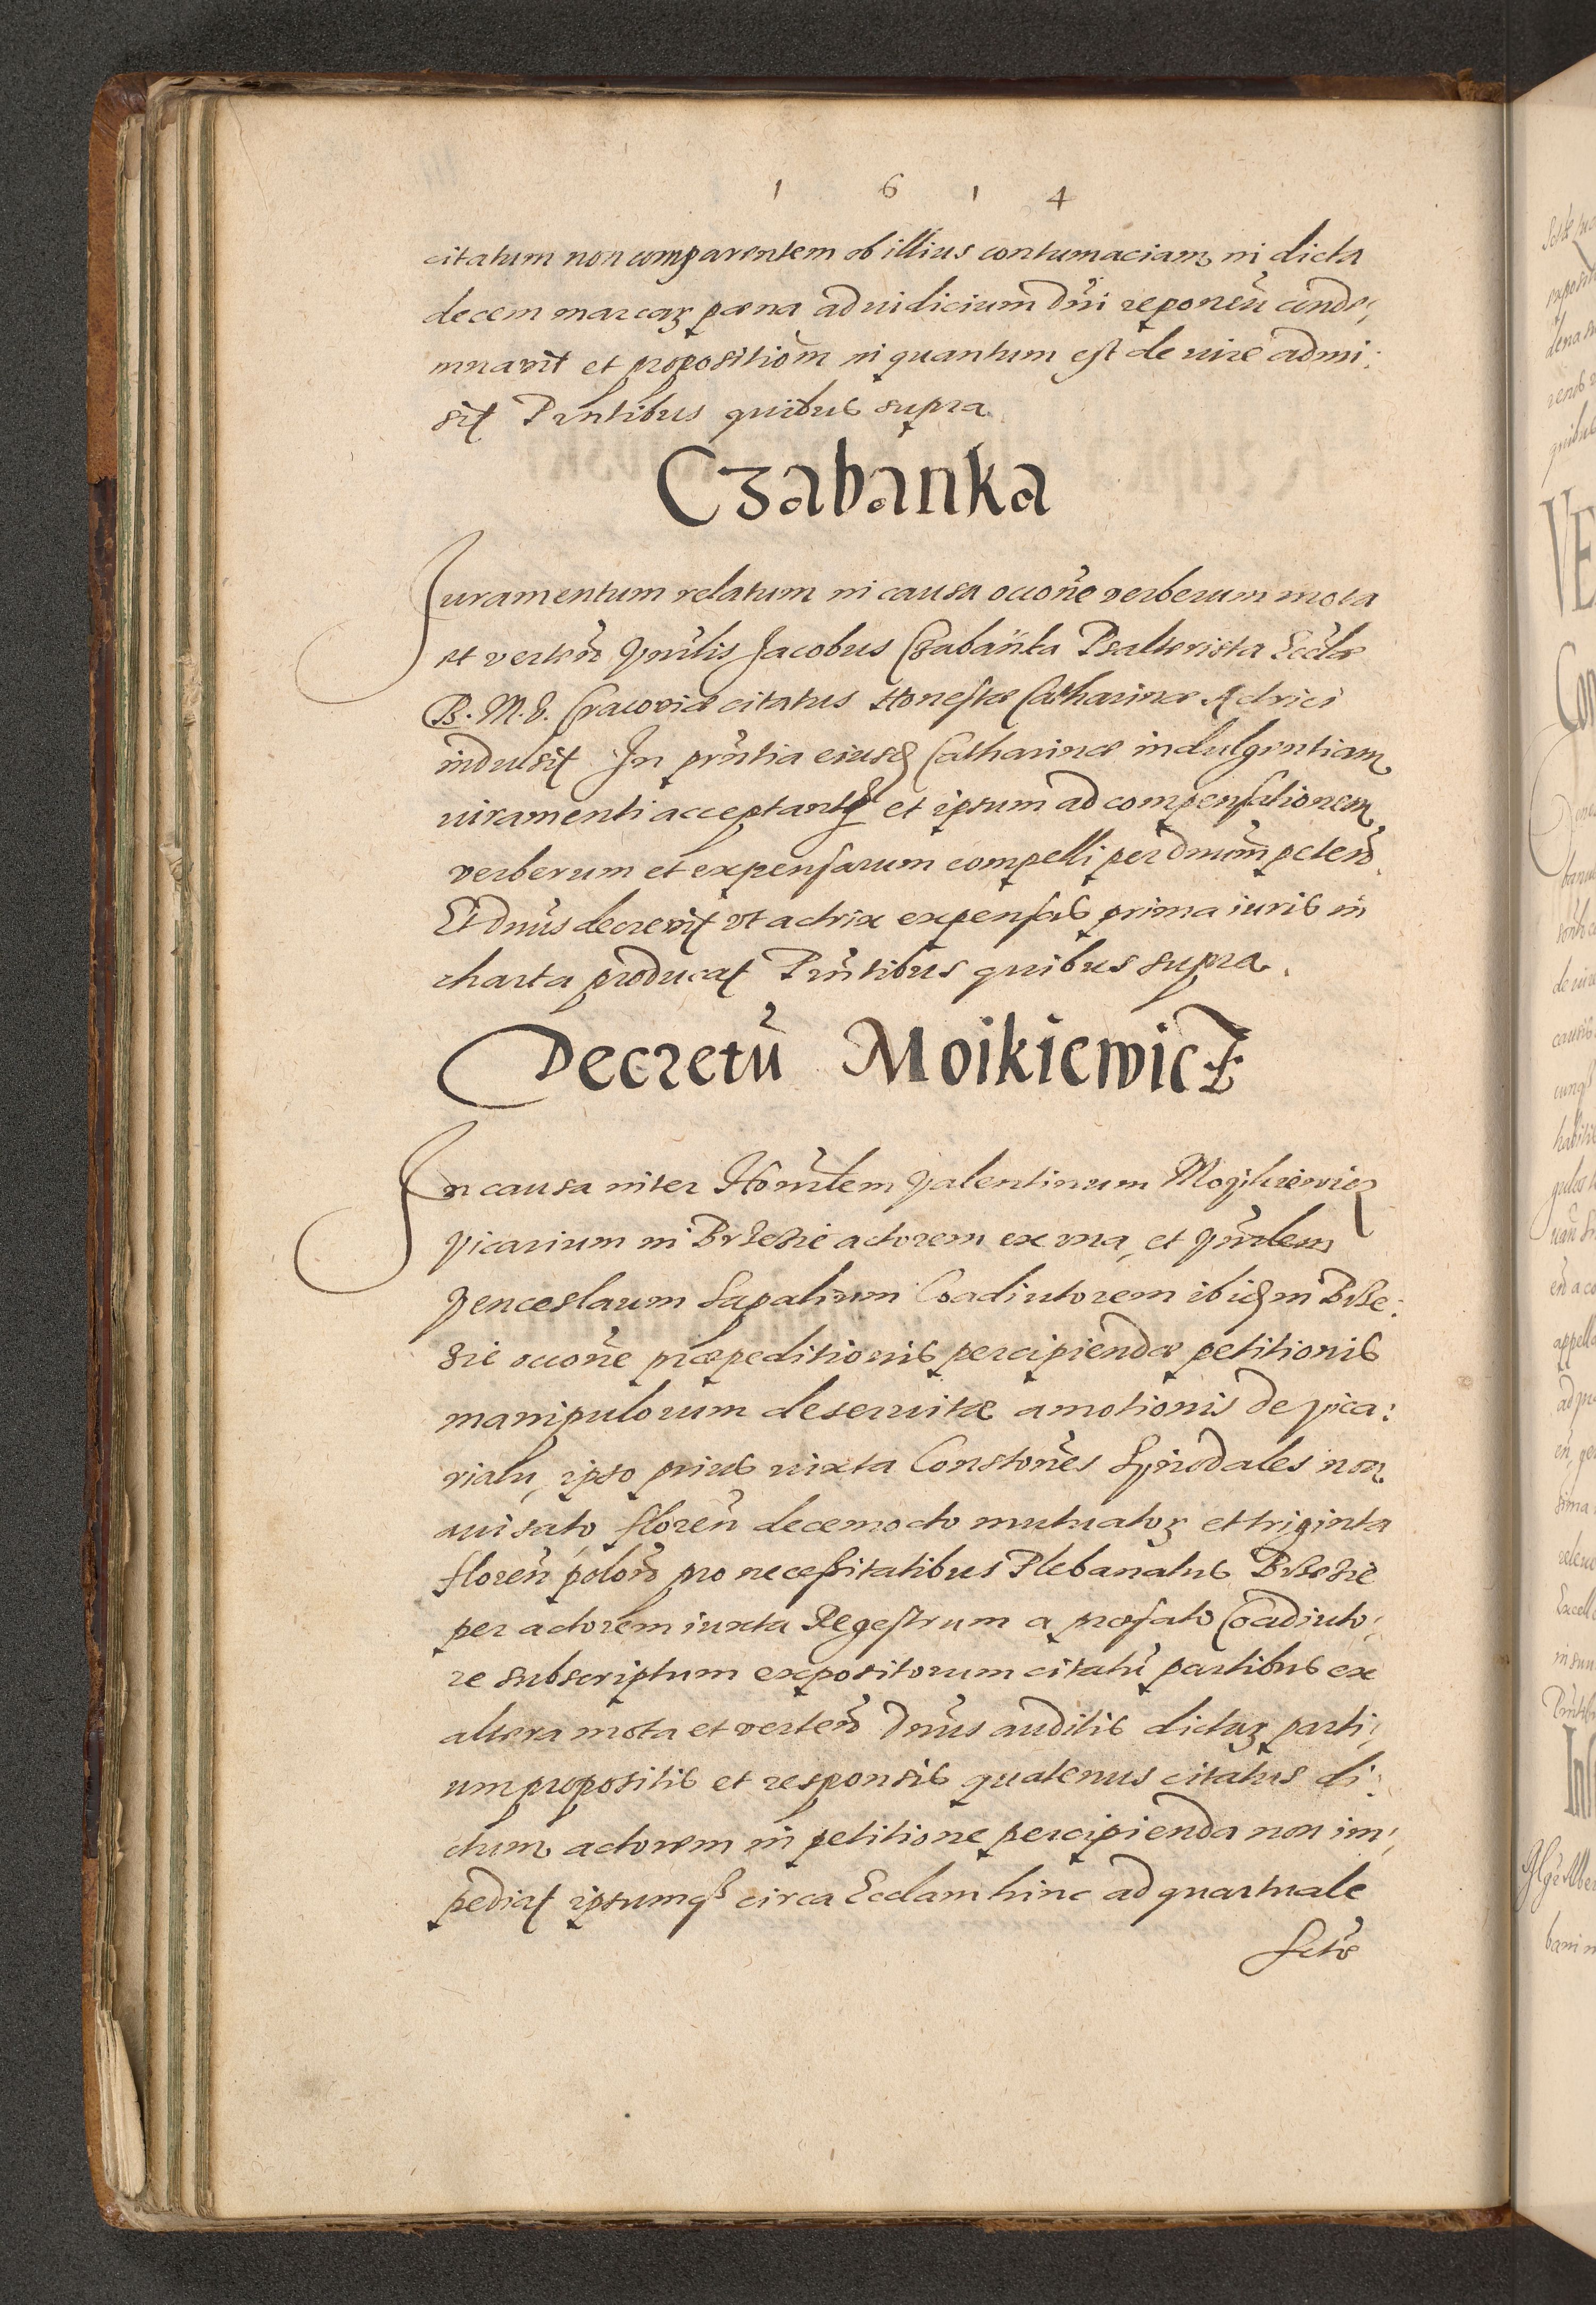 1 6 1 4
citatum non comparentem ob illius contumaciam in dicta
decem marcaȝ pœna ad iudicium Dni reponeñ conde,
mnavit et propositiõm in quantum est de iure admi:
sit Pntibus quibus supra
Czabanka
Juramentum relatum in causa occone verberum mota
et verteñ Jacobus Czabanka Psalterista Eccłæ
B. M. V. Cracoviæ citatus Honestæ Catharinæ Actrici
indulsit. In pñtia eiusd Catharinæ indulgentiam
iuramenti acceptantis et ipsum ad compensationem
verberum et expensarum compelli per Dnum peteñ.
Et Dnus decrevit ut actrix expensas prima iuris in
charta producat Pñtibus quibus supra.
Decretũ Moikiewicz
In causa inter Honłem Valentinum Moyikiewicz
Vicarium in Brzezie actorem ex una, et
Venceslaum Sapalium Coadiutorem ibid in Brze:
zie occone præpeditionis percipiendæ petitionis
manipulorum deservitæ amotionis de Vica:
riatu, ipso prius iuxta Constones Synodales non
avisato floreñ decemocto mutuatoȝ et triginta
floreñ poloñ pro necessitatibus Plebanatus Brzezie
per actorem iuxta Regestrum a præfato Coadiuto,
re subscriptum expositorum citatũ partibus ex
altera mota et verteñ Dnus auditis dictaȝ parti,
um propositis et responsis quatenus citatus di:
ctum actorem in petitione percipienda non im,
pediat ipsumqȝ circa Ecclam hinc ad quartuale